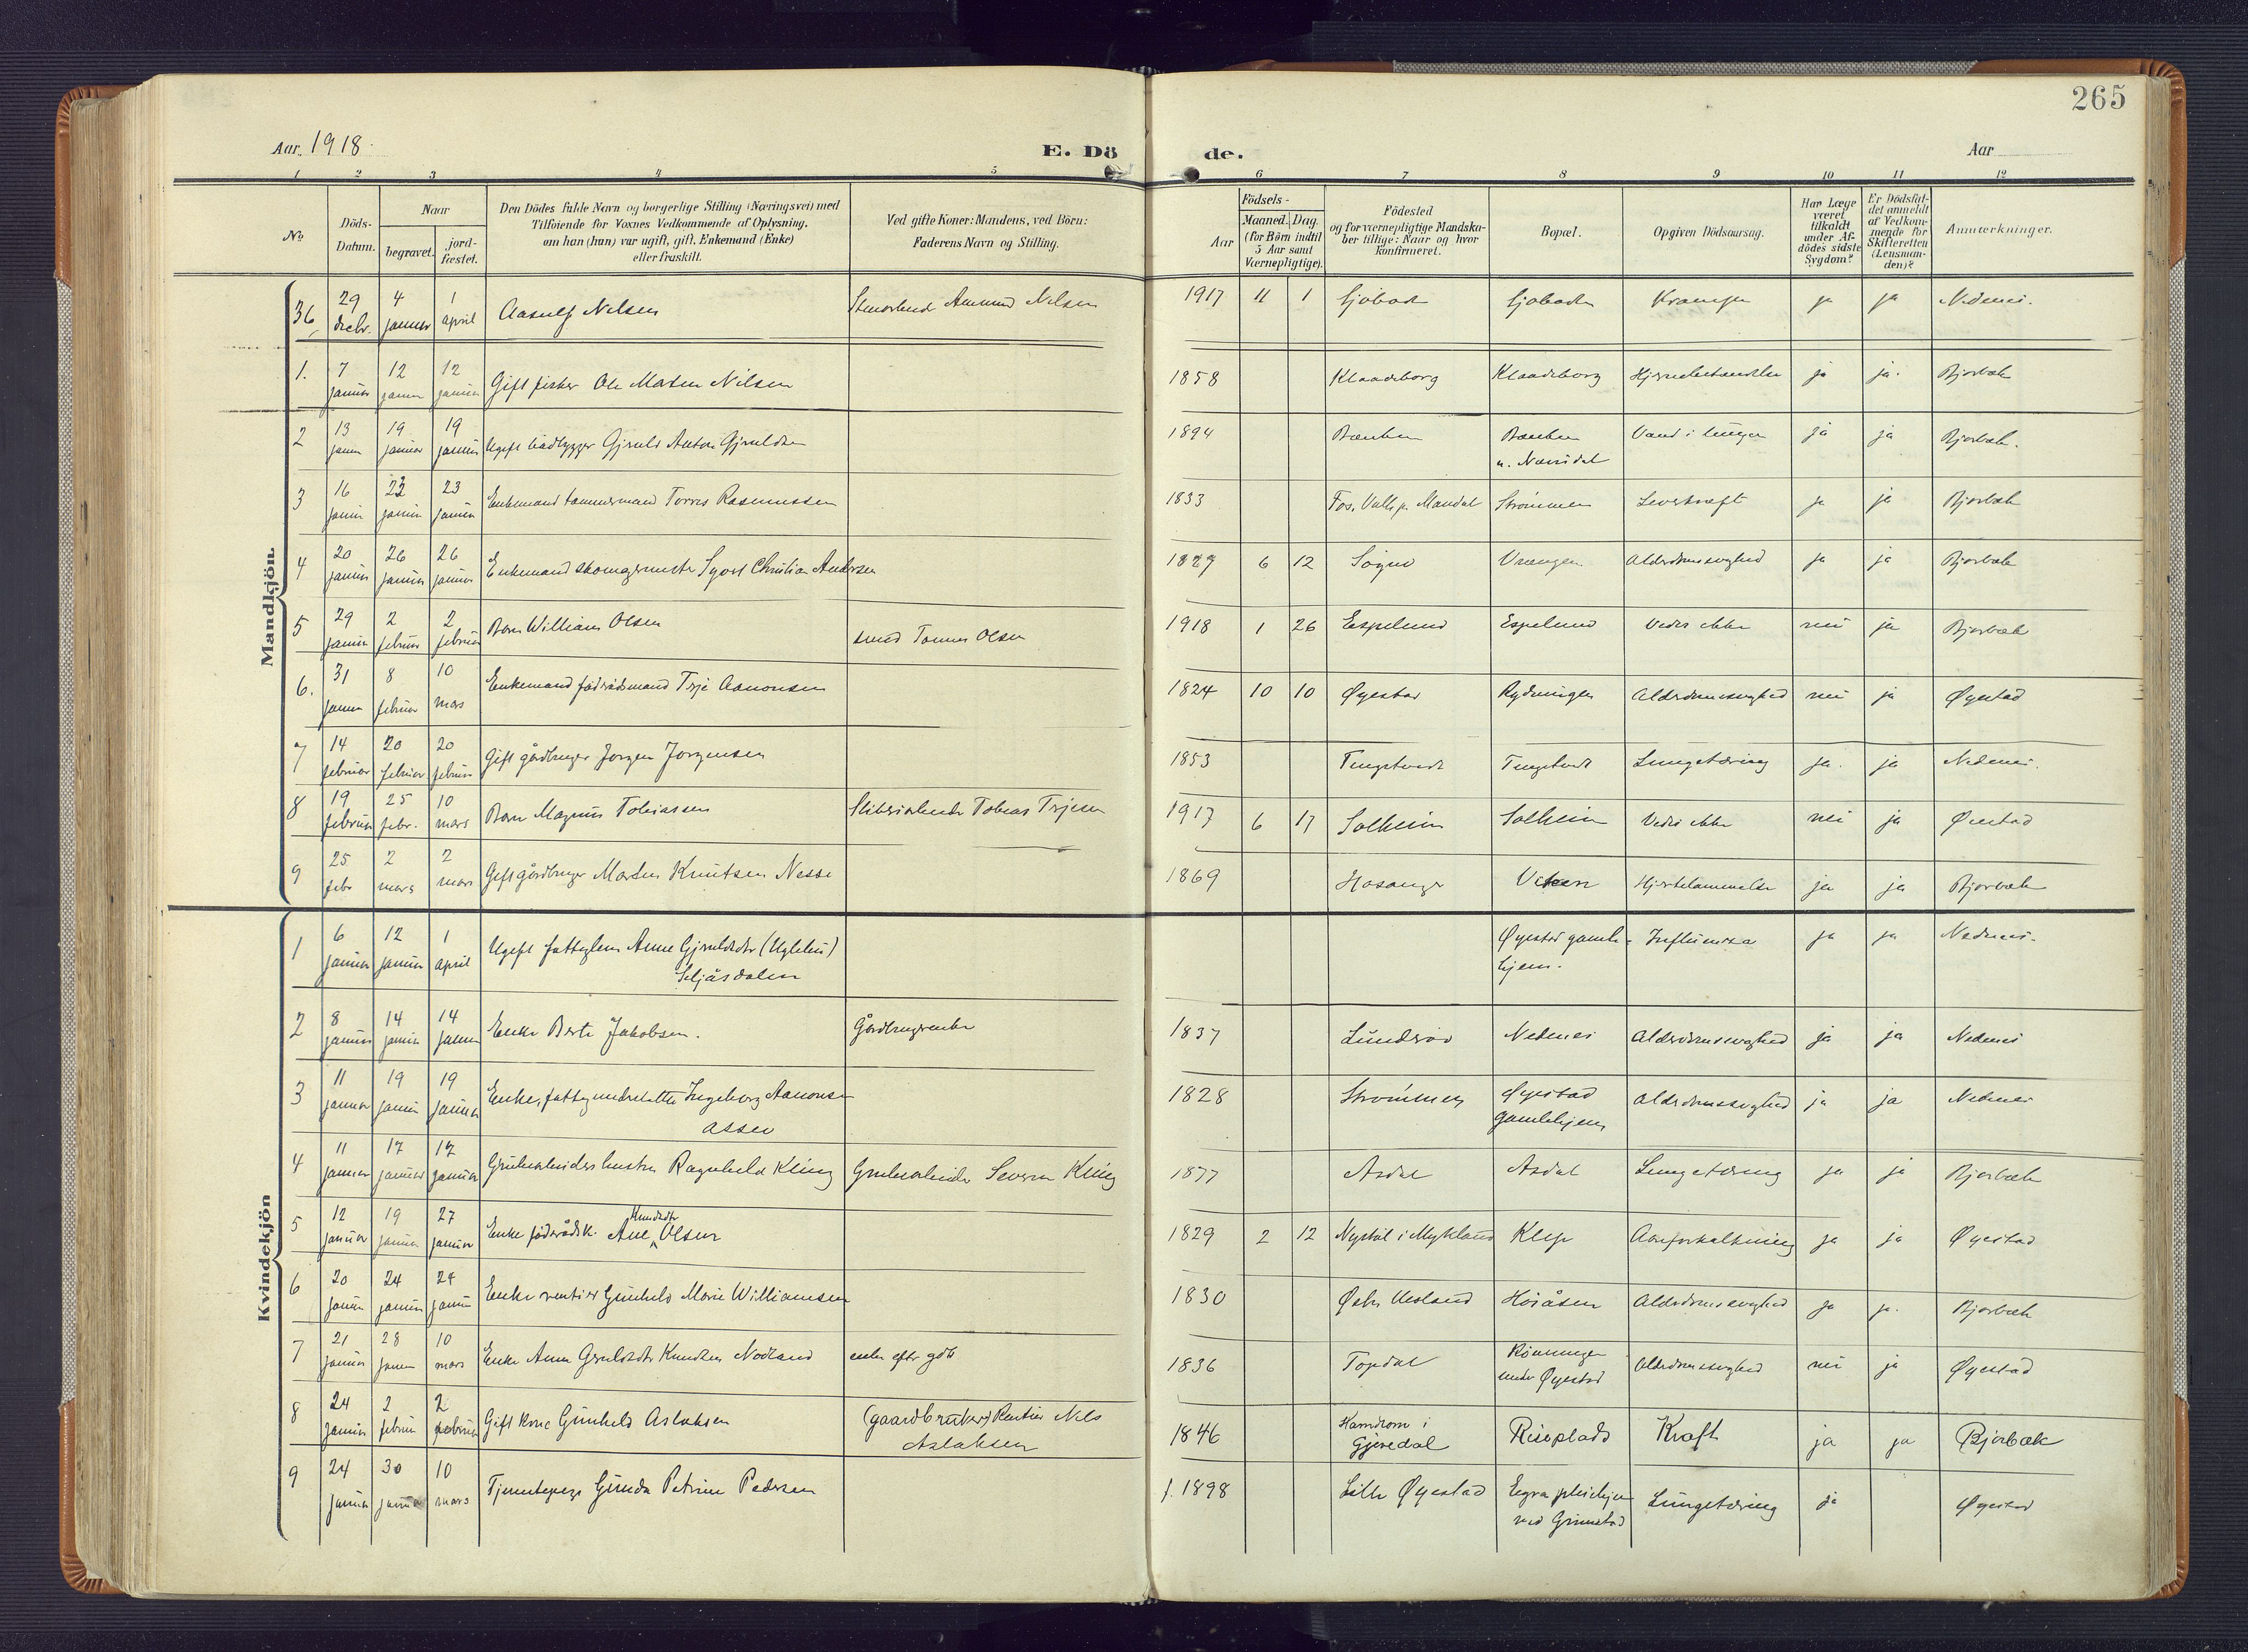 265
Aar 1918.
E. Dö de.
Aar
1 2 3 4 5 6 7 8 9 10 11 12
No
Döds-Datum.
Naar
begravet.
jord-fæstet.
Den Dödes fulde Navn og borgerlige Stilling (Næringsvei) med
Tilföiende for Voxnes Vedkommende af Oplysning,
om han (hun) var ugift, gift, Enkemand (Enke)
eller fraskilt.
Ved gifte Koner: Mandens, ved Börn:
Faderens Navn og Stilling.
Födsels-
Aar
Maaned. Dag.
(for Börn indtil
5 Aar samt
Værnepligtige).
Födested
og for værnepligtige Mandska-
ber tillige: Naar og hvor
konfirmeret.
Bopæl.
Opgiven Dödsaarsag.
Har Læge
været
tilkaldt
under Af-
dödes sidste
Sygdom?
Er Dödsfal-
det anmeldt
af Vedkom-
mende for
Skifteretten
(Lensman-
den)?
Anmærkninger.
Mandkjön
36 29 decbr. 4 januar 1 april Aasulf Nilsen Amund Nilsen 1917 11 1 Sjøbod Krampe ja ja Nedenes.
1. 7 januar 12 januar 12 januar Gift fisker Ole Martin Nilsen 1858 Klaadeborg Klaadeborg ja ja. Bjorbæk
2 13 januar 19 januar 19 januar Ugift baadbygger Gjeruld Anton Gjeruldsen 1894 Vand i lunger ja ja Bjorbæk.
3 16 januar 23 januar 23 januar Enkemand tømmermand Torres Rasmussen 1833 Mandal Strømmen Leverkræft ja ja Bjorbæk
4 20 januar 26 januar 26 januar Enkemand skomagermester Syvert Christian Andersen 1827 6 12 Søgne Vrængen Alderdomssvaghed ja ja Bjorbæk
5 29 januar 2 februar 2 februar Barn William Olsen smed Tomas Olsen 1918 1 26 Espelund Espelund Vides ikke nei ja Bjorbæk
6. 31 januar 8 februar 10 mars Enkemand föderådsmand Terje Aanonsen 1824 10 10 Øyestad Rydningen Alderdomssvaghed nei ja Øyestad
7 14 februar 20 februar 20 februar Gift gårdbruger Jørgen Jørgensen 1853 Tingstveit Tingstveit Lungetæring ja. ja Nedenes.
8 19 februar 25 febr. 10 mars Barn Magnus Tobiassen Sliberiarbeider Tobias Terjesen 1917 6 17 Solheim Solheim Vides ikke nei ja Øiestad
9 25 febr 2 mars 2 mars Gift gårdbruger Morten Knutsen Nesse 1869 Hosanger Viken Hjertelammelse ja ja Bjorbæk
Kvindekjön
1 6 januar 12 januar 1 april Ugift fattiglem Anne Gjeruldsdtr (Uglehei)
Seljåsdalen Øyestad gamle-
hjem. Influenza ja ja Nedenes.
2 8 januar 14 januar 14 januar Enke Berte Jakobsen. Gårdbrugerenke 1837 Lundsrød Nedenes Alderdomssvaghed ja ja Nedenes
3 11 januar 19 januar 19 januar Enke, fattigunderstøttet Ingeborg Aanonsen
Assev 1828 Strømmen Øyestad
gamlehjem Alderdomssvaghed ja ja Nedenes
4 11 januar 17 januar 17 januar Grubearbeiders hustru Ragnhild Kling Grubearbeider Severin Kling 1877 Asdal Asdal Lungetæring ja ja Bjorbæk
5 12 januar 19 januar 27 januar Enke föderådsk. Ane Knudsdtr Olsen 1829 2 12 Nystøl i Mykland Klep Aareforkalkning ja ja Øyestad
6 20 januar 24 januar 24 januar Enke rentier Gunhild Marie Williamsen 1830 Østre Uesland Høiåsen Alderdomssvaghed ja ja. Bjorbæk
7 21 januar 28 januar 10 mars Enke Anne Gjeruldsdtr Knudsen Nodeland enke efter gdb 1836 Topdal Rønningen
under Øyestad Alderdomssvaghed nei ja Øyestad
8 24 januar 2 februar 2 februar Gift kone Gunhild Aslaksen (gaardbruker) Rentier Nils
Aslaksen 1846 i
Gjøvedal Riseplads Kræft ja ja Bjorbæk
9 24 januar 30 januar 10 mars Tjenestepige Gunda Petrine Pedersen f. 1898 Lille Øyestad pleiehjem
ved Grimstad Lungetæring ja Øyestad